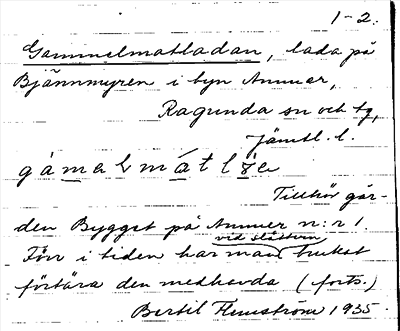 1-2.
Gammelmatladan, lada på
Bjännmyren i byn Ammer,
Ragunda sn och tg,
Jämtl. l.
Tillhör går-
den Bygget på Ammer n:r 1.
vid slåttern
Förr i tiden har man brukat
förtära den medhavda (forts.)
Bertil Flemström 1935.